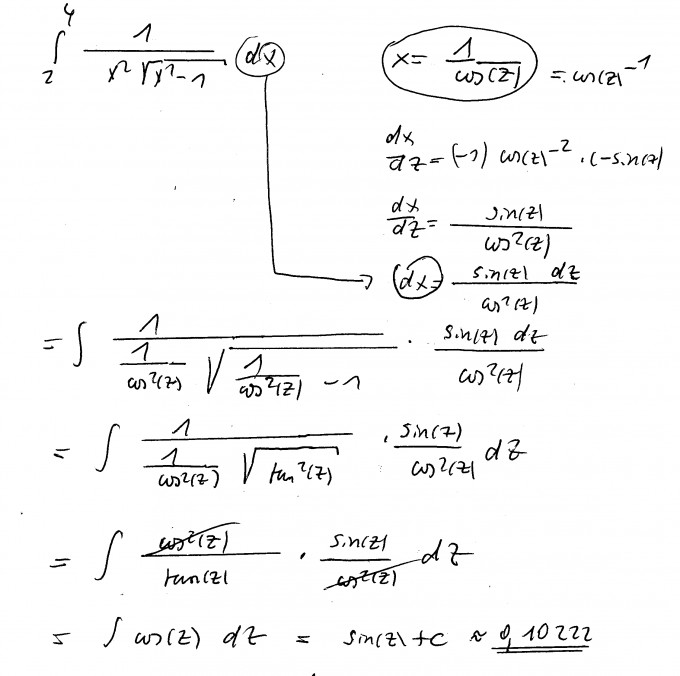 ∫₂⁴ 1/(x²√(x²-1)) dx
x = 1/cos(z) = cos(z)⁻¹
dx/dz = (-1) cos(z)⁻² · (-sin(z)
dx/dz = sin(z)/cos²(z)
dx = sin(z) dz/cos²(z)
= ∫ 1/(1/cos²(z) √(1/cos²(z) - 1)) · sin(z) dz/cos²(z)
= ∫ 1/(1/cos²(z) √(tan²(z))) · sin(z)/cos²(z) dz
= ∫ cos²(z)/tan(z) · sin(z)/cos²(z) dz
= ∫ cos(z) dz = sin(z)+c ≈ 0,10222